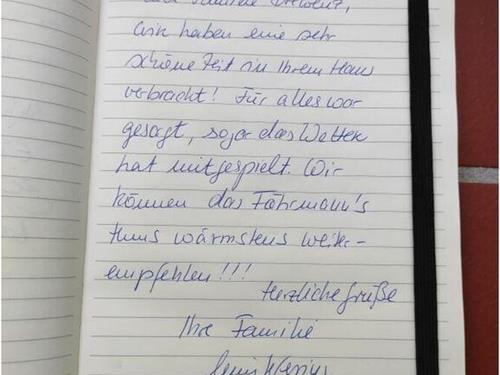 Familie
wir haben eine sehr
schöne Zeit in Ihrem Haus
verbracht! Für alles war
gesorgt, sogar das Wetter
hat mitgespielt. Wir
können das Fährmann's
Huus wärmstens weiter-
empfehlen!!!
Herzliche Grüße
Ihre Familie